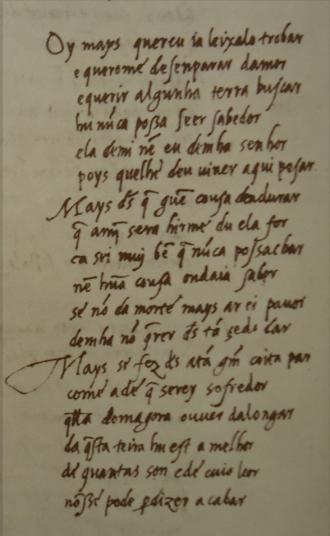 Oy mays quereu ia leixalo trobar
e querome desenparar damor
e querir algunha terra buscar
hu nūca possa seer sabedor
ela demi nē eu demha senhor
poys quelhe deu uiuer aqui pesar
Mays ds̄ q̄ guē cousa dendurar
q̄ amj̄ sera hirme du ela for
ca sei muj bē q̄ nūca possachar
nē hūa cousa ondaia sabor
se nō da morte mays ar ei pauor
demha nō q̄rer ds̄ tā çedo dar
Mays se fez ds̄ atā gm̄ coita par
come a de q̄ serey sofredor
q̄do magora ouuer dalongar
da q̄sta terra hu est a melhor
de quantas son e de cuio loor
nō sse pode p̄ dizer acabar